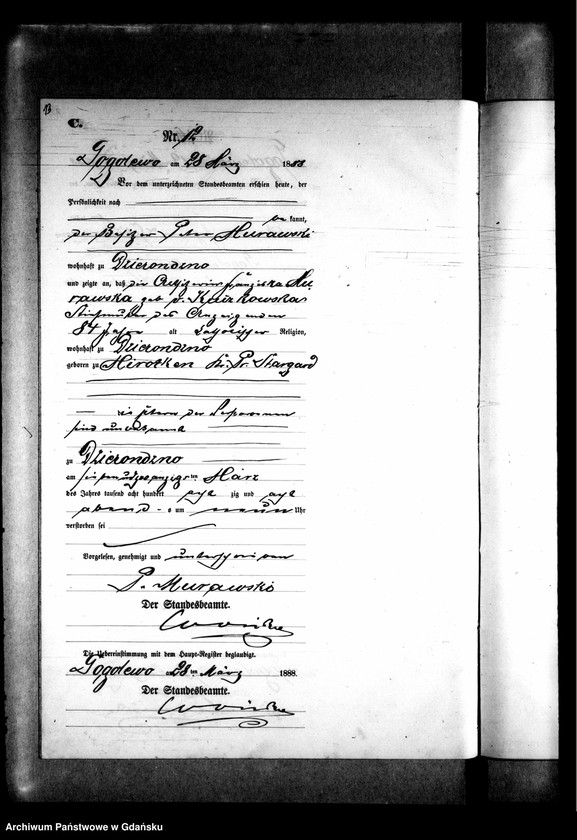 13
C.
Nr. 12
Gogolewo am 28 März 1888
Vor dem unterzeichneten Standesbeamten erschien heute, der
Persönlichkeit nach
be kannt,
der Besitzer Peter Murawski
wohnhaft zu Dzierondzno
und zeigte an, daß die Franziska Mu
rawska geb. v. Kaszkowska
Stiefmutter des Anzeigenden
84 Jahre alt katholischer Religion,
wohnhaft zu Dzierondzno
geboren zu Mirotken Kr. Pr. Stargard
die Eltern der Verstorbenen
sind unbekannt
zu Dzierondzno
am siebenundzwanzigsten März
des Jahres tausend acht hundert acht zig und acht
abends um neun Uhr
verstorben sei
Vorgelesen, genehmigt und unterschrieben
P. Murawski
Der Standesbeamte.
Die Uebereinstimmung mit dem Haupt-Register beglaubigt.
Gogolewo 28 ten März 1888.
Der Standesbeamte.
Archiwum Państwowe w Gdańsku